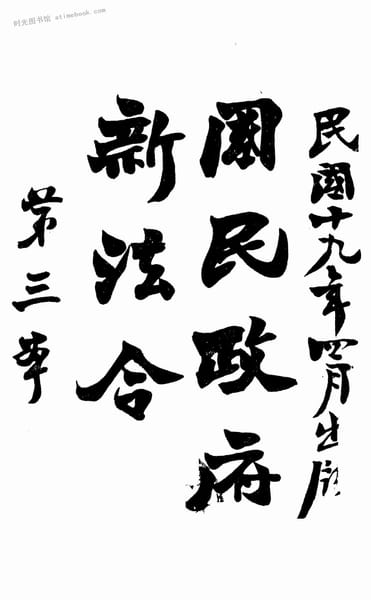 时光图书馆 atimebook.com
民國十九年四月出版
國民政府
新法令
第三